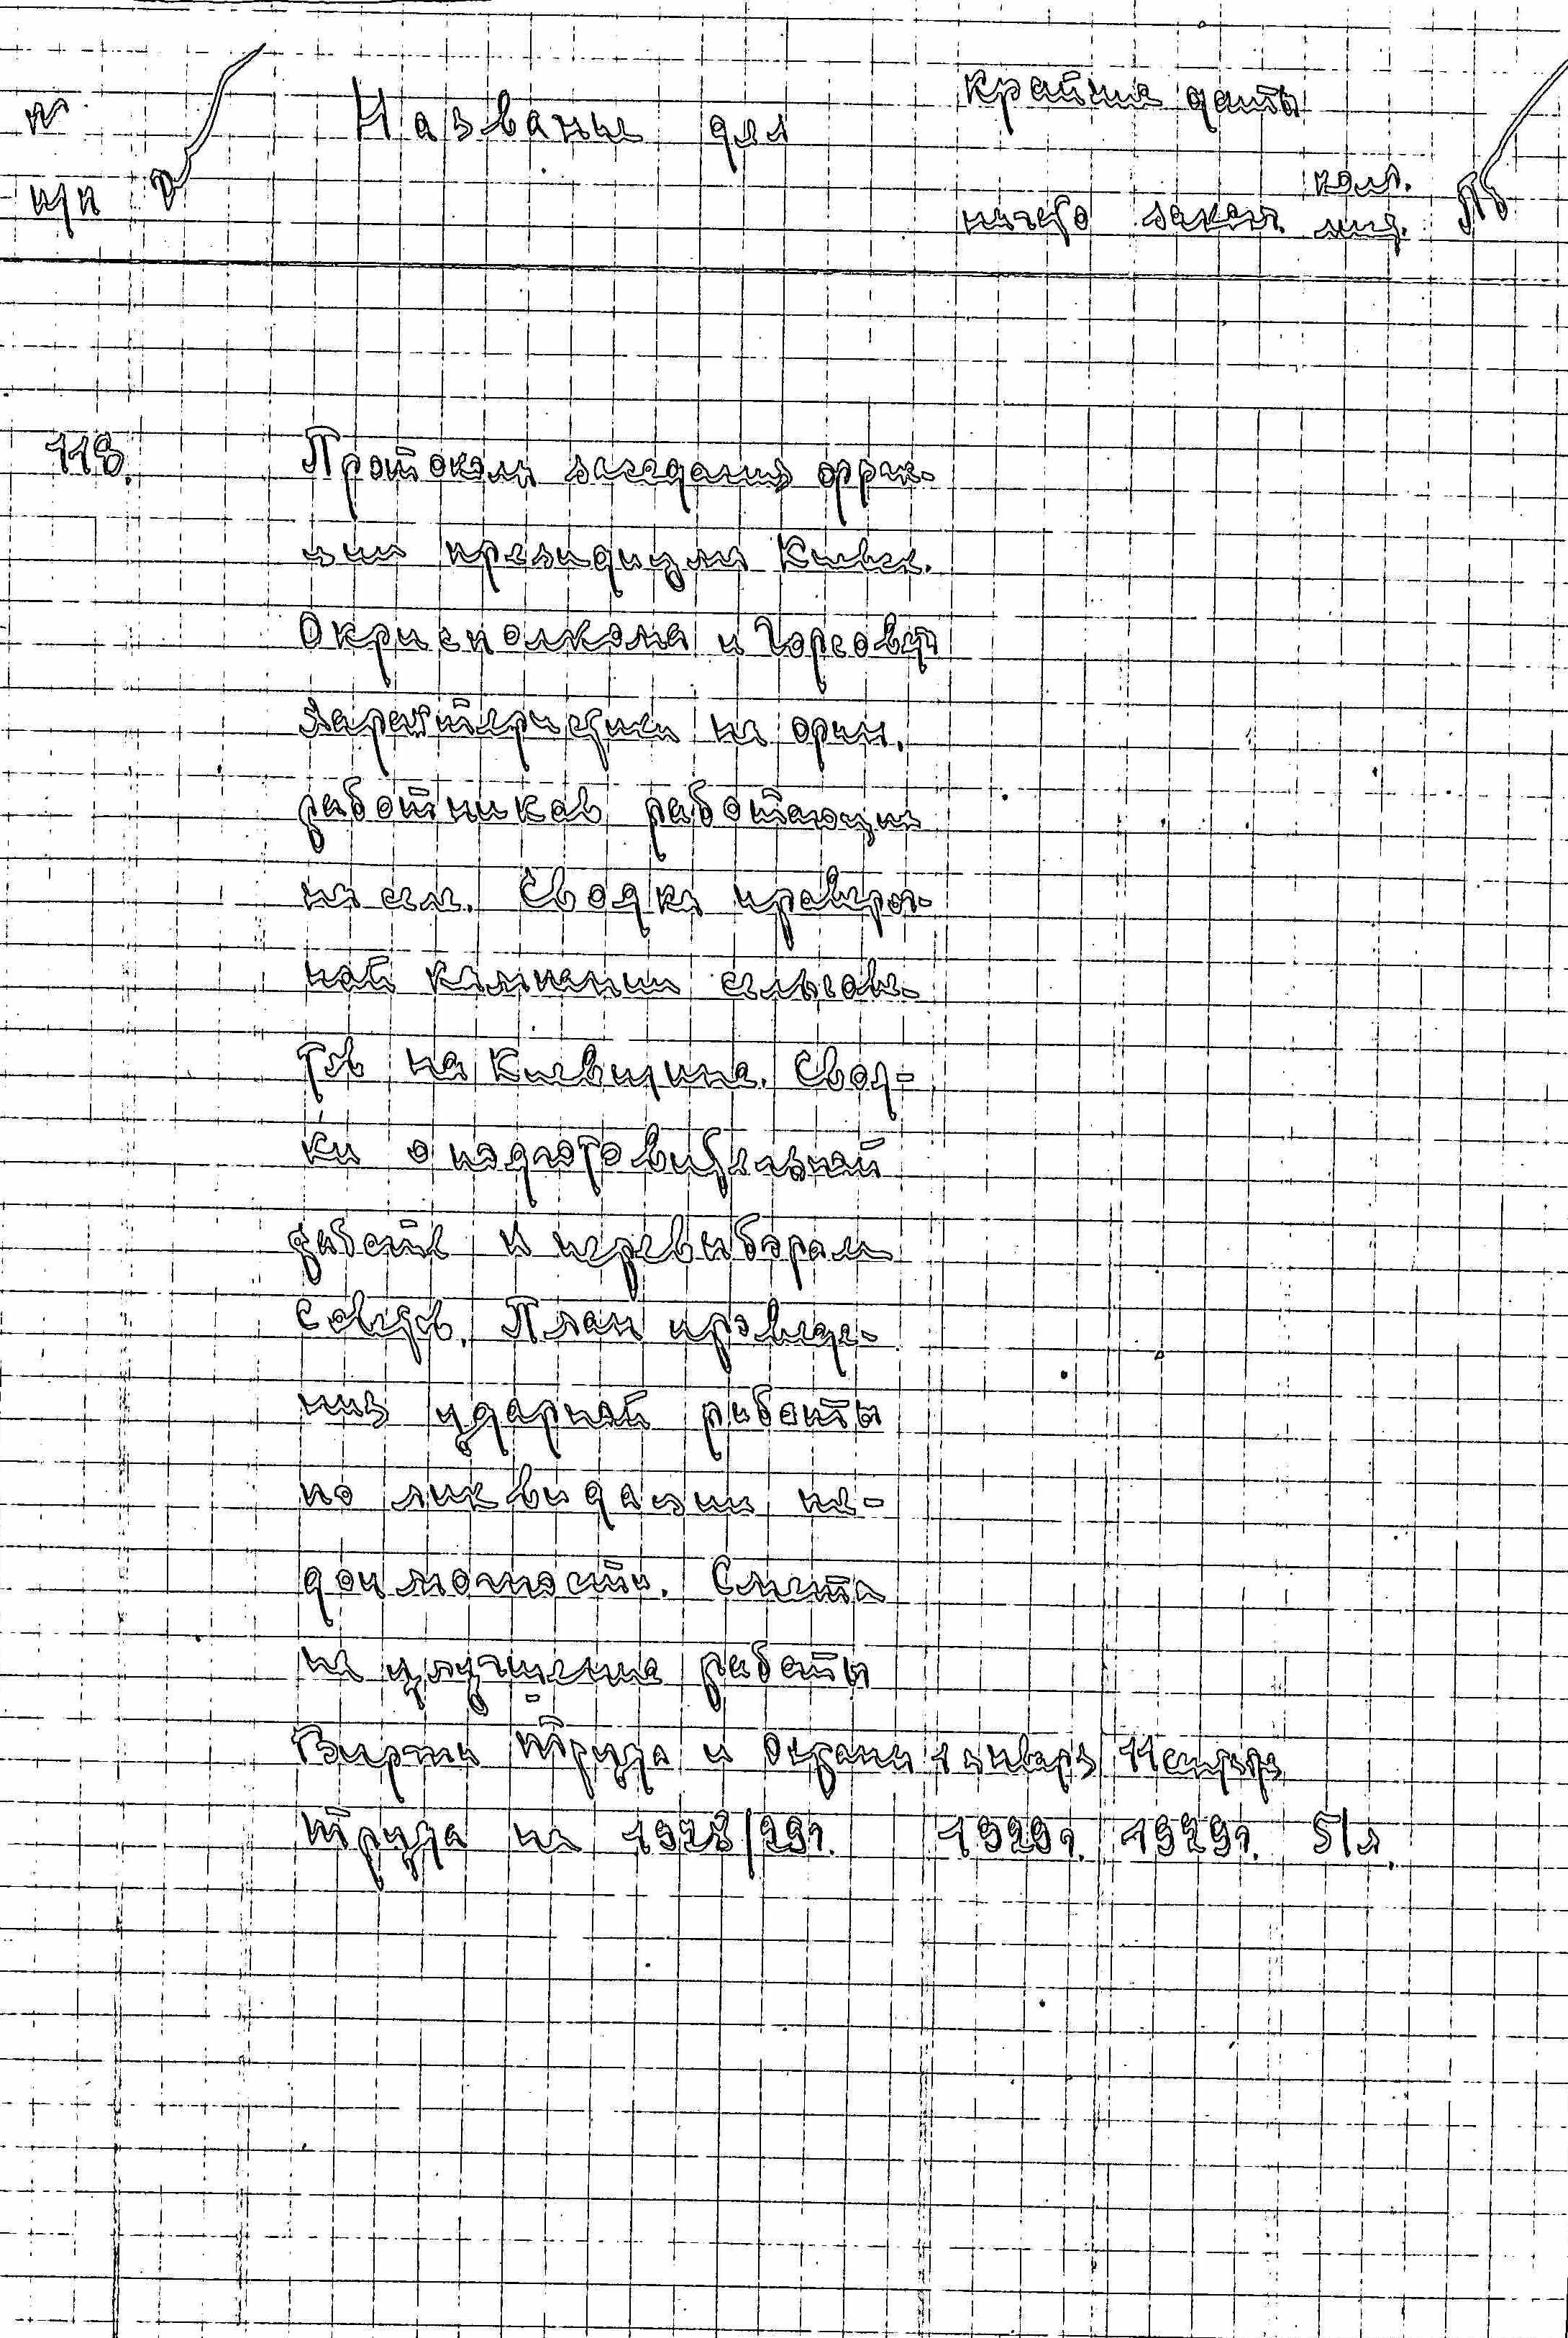 N Название дел крайние даты
п/п начато законч. колич. лист.
118. Протоколы заседания фрак-
ции президиума Киевск.
Окрисполкома и Горсовета
Характеристики на
работников работающих
на селе. Сводка провероч-
ной кампании сельсове-
тов на Киевщине. Свод-
ки о подготовительной
работе к перевыборам
советов. План проведе-
ния ударной работы
по ликвидации не-
доимочности. Смета
на улучшение работы
Биржи труда и охраны 1 январь 11
труда на 1928/29г. 1929г. 1929г. 51л.